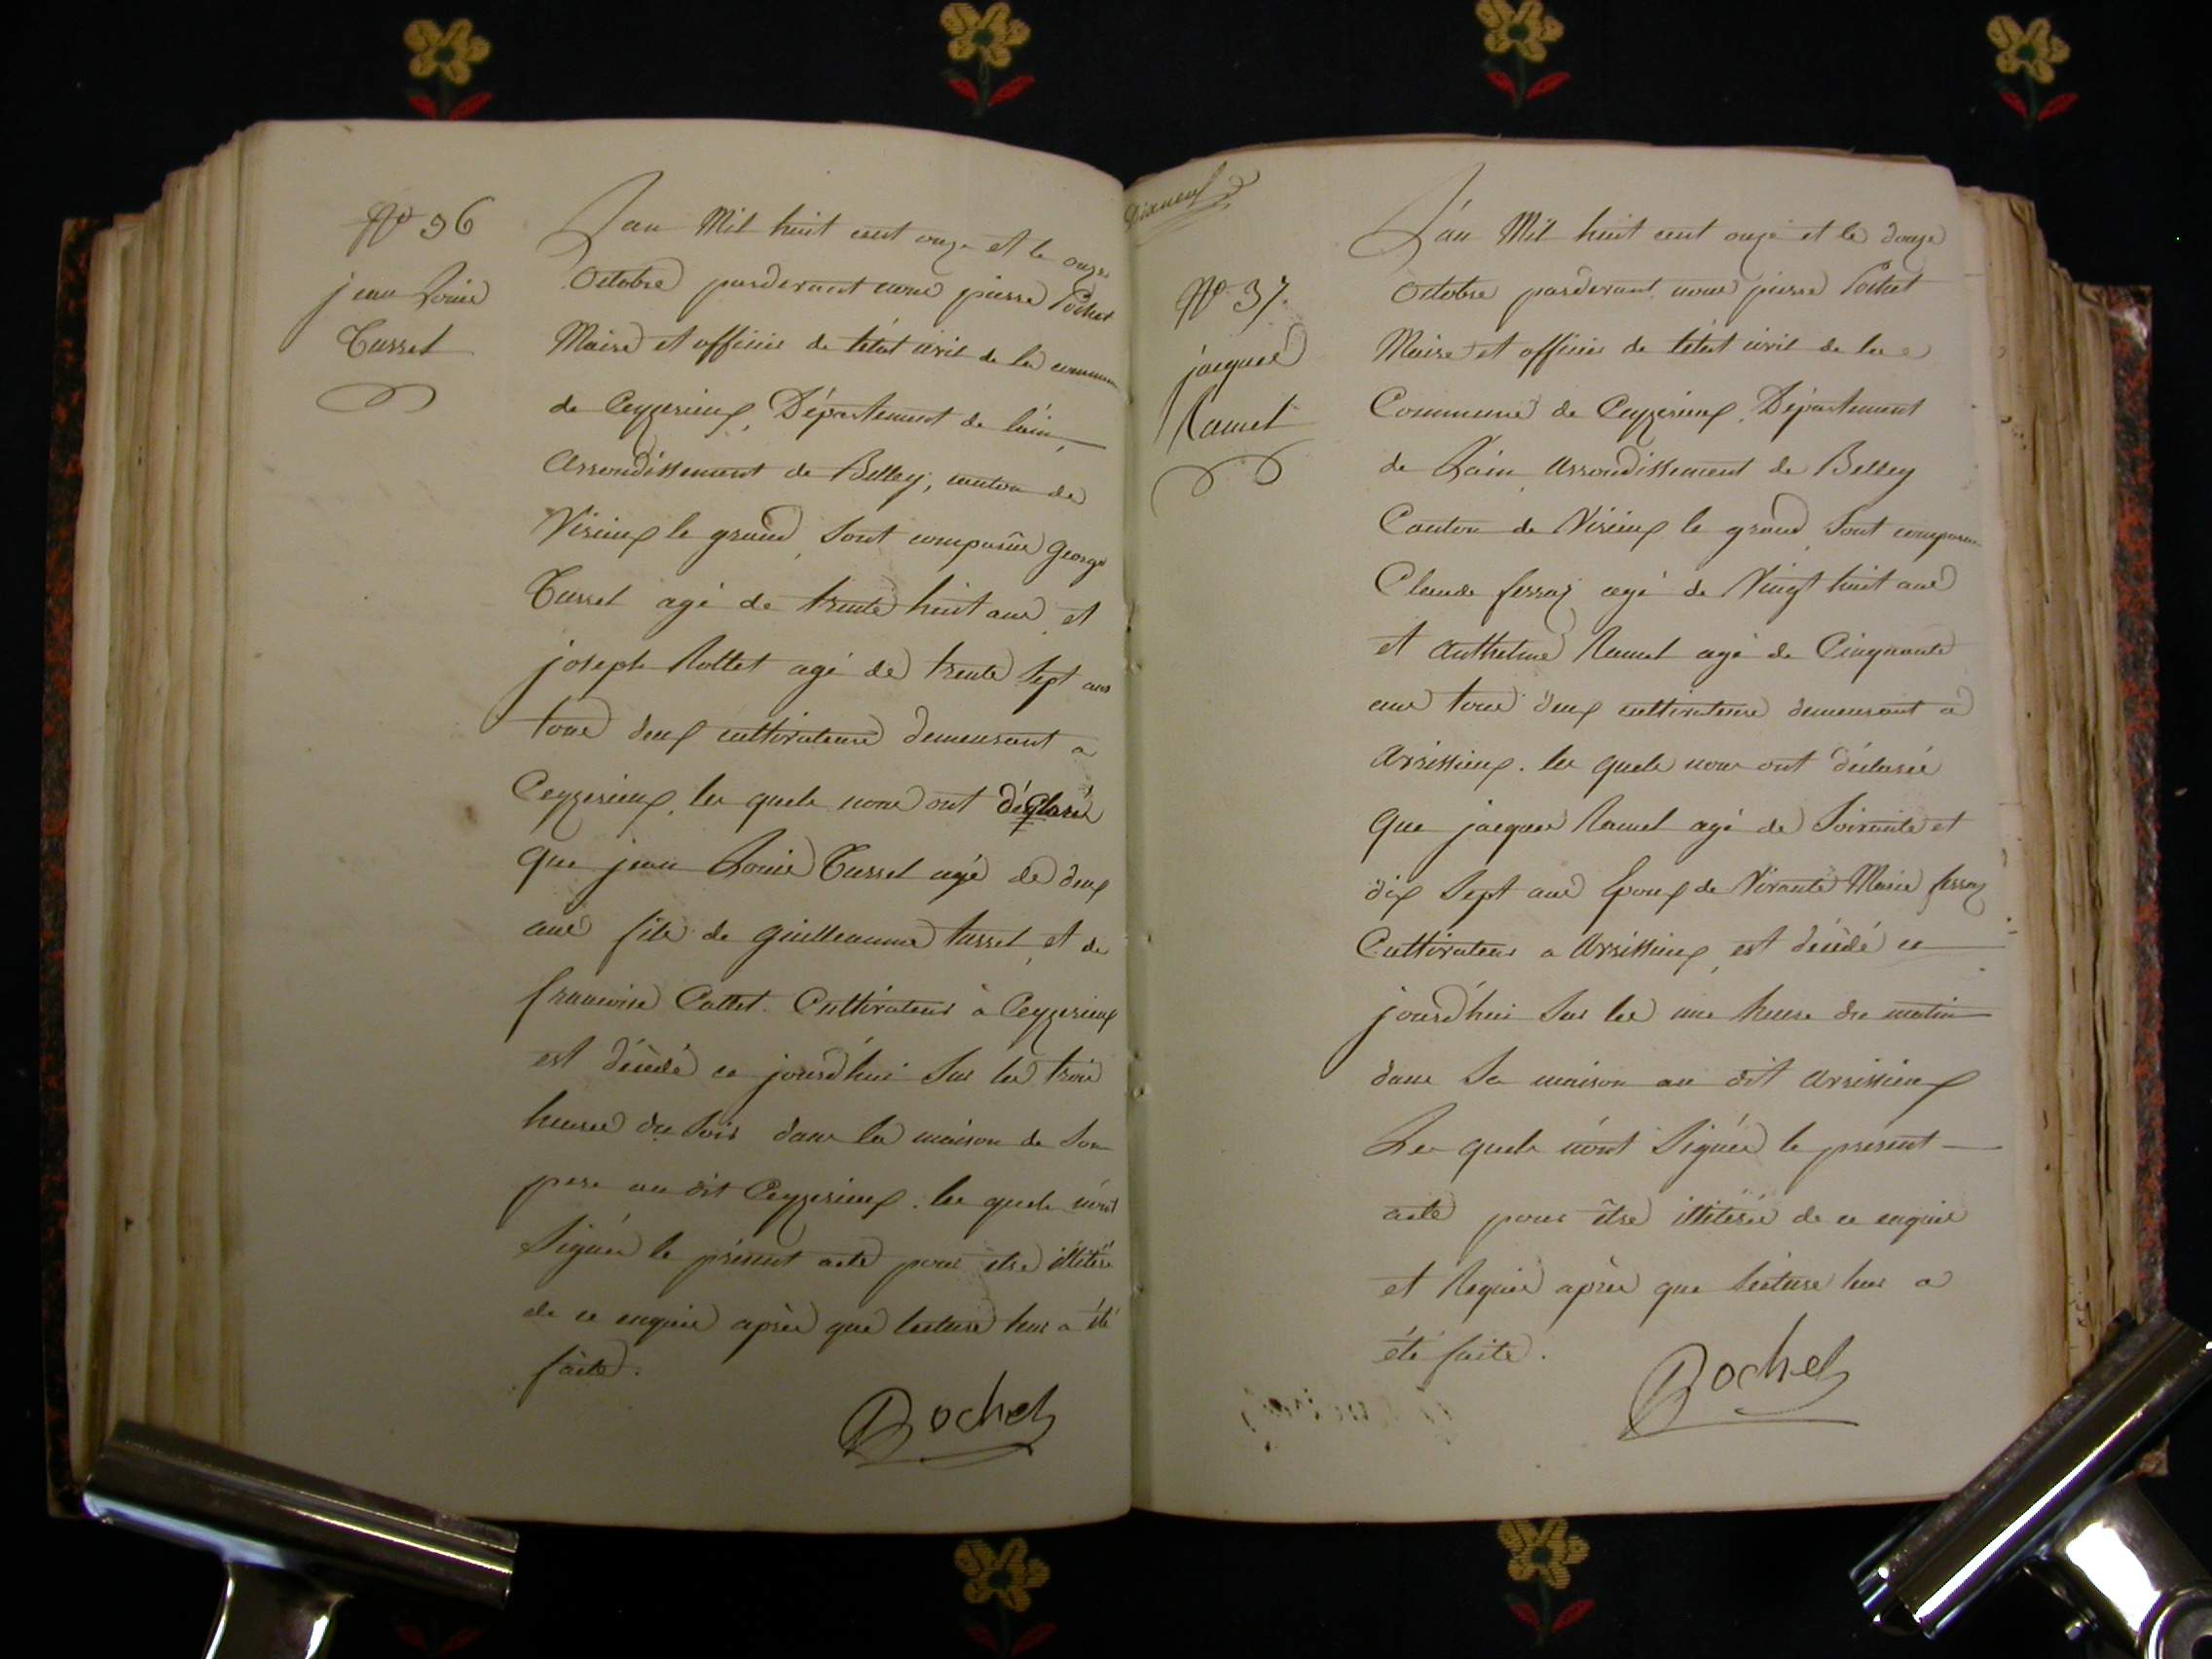 N° 36
jean Louis
Tusset
L'an Mil huit cent onze et le onze
Octobre pardevant nous pierre Pochet
Maire et officier de létat civil de la commune
de Ceyzerieux, Département de l'ain,
Arrondissement de Belley, canton de
Virieux le grand, Sont comparus George
Tusset agé de trente huit ans, et
joseph Rollet agé de trente Sept ans
tous deux cultivateurs demeurant a
Ceyzerieux, les quels nous ont déclaré
que jean Louis Tusset agé de deux
ans fils de guilleaume tusset, et de
francoise Collet Cultivateur à Ceyzerieux
est décédé ce jourd'hui Sur les trois
heures du Soir dans la maison de Son
pere au dit Ceyzerieux. les quels n'ont
Signés le présent acte pour etre illitéré
de ce enquis après que lecture leur a été
faite.
Pochet
N° 37.
jacques
Ramel
L'an Mil huit cent onze et le douze
Octobre pardevant nous pierre Pochet
Maire et officier de létat civil de la
Commune de Ceyzerieux, Département
de L'ain, Arrondissement de Belley
Canton de Virieux le grand Sont comparus
Claude ferraz agé de Vingt huit ans
et Anthelme Ramel agé de Cinquante
ans tous deux cultivateurs demeurant a
Avrissieux. les quels nous ont déclaré
Que jacques Ramel agé de Soixante et
dix Sept ans Epoux de Vivante Marie ferraz
Cultivateur a Avrissieux, est décédé ce
jourd'hui Sur les une heure du matin
dans Sa maison au dit Avrissieux
Les quels n'ont Signés le present
acte pour être illitéré de ce enquis
et Requis après que lecture leur a
été faite.
Pochet